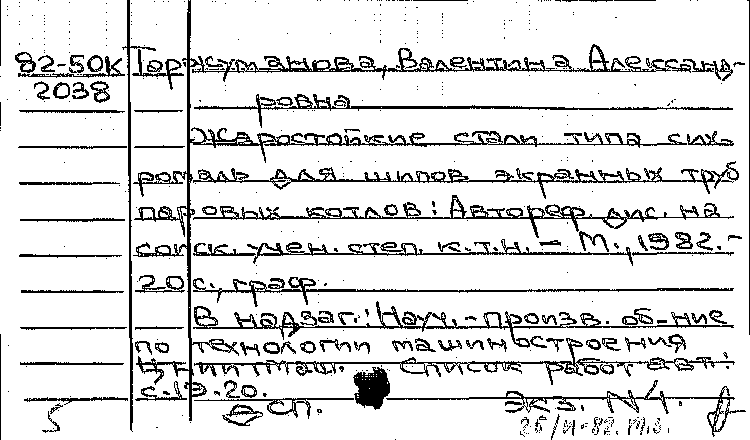 82-50К Торжуманова, Валентина Александ-
2038 ровна
Жаростойкие стали типа сих-
ромаль для шипов экранных труб
паровых котлов: Автореф. дис. на
соиск. учен. степ. к.т.н. – М., 1982. –
20 с., граф.
В надзаг.: Науч.-произв. об-ние
по технологии машиностроения
ЦНИИТМаш. Список работ авт.:
с. 19-20.
5 СП. Экз. N4.